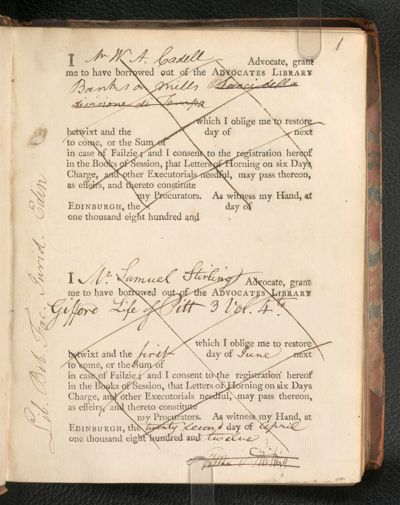 1
I Mr W. A. Cadell Advocate, grant
me to have borrowed out of the ADVOCATES LIBRARY
Banks on Mills
divisione di
which I oblige me to restore
betwixt and the day of next
to come, or the Sum of
in case of Failzie; and I consent to the registration hereof
in the Books of Session, that Letters of Horning on six Days
Charge, and other Executorials needful, may pass thereon,
as effeirs, and thereto constitute
my Procurators. As witness my Hand, at
EDINBURGH, the day of
one thousand eight hundred and
I Mr. Samuel Stirling Advocate, grant
me to have borrowed out of the ADVOCATES LIBRARY
Gifford Life of Pitt 3 Vol. 4to
which I oblige me to restore
betwixt and the first day of June next
to come, or the Sum of
in case of Failzie; and I consent to the registration hereof
in the Books of Session, that Letters of Horning on six Days
Charge, and other Executorials needful, may pass thereon,
as effeirs, and thereto constitute
my Procurators. As witness my Hand, at
EDINBURGH, the twenty second day of April
one thousand eight hundred and twelve
Lib. Bib. Fac. Jurid. Edin